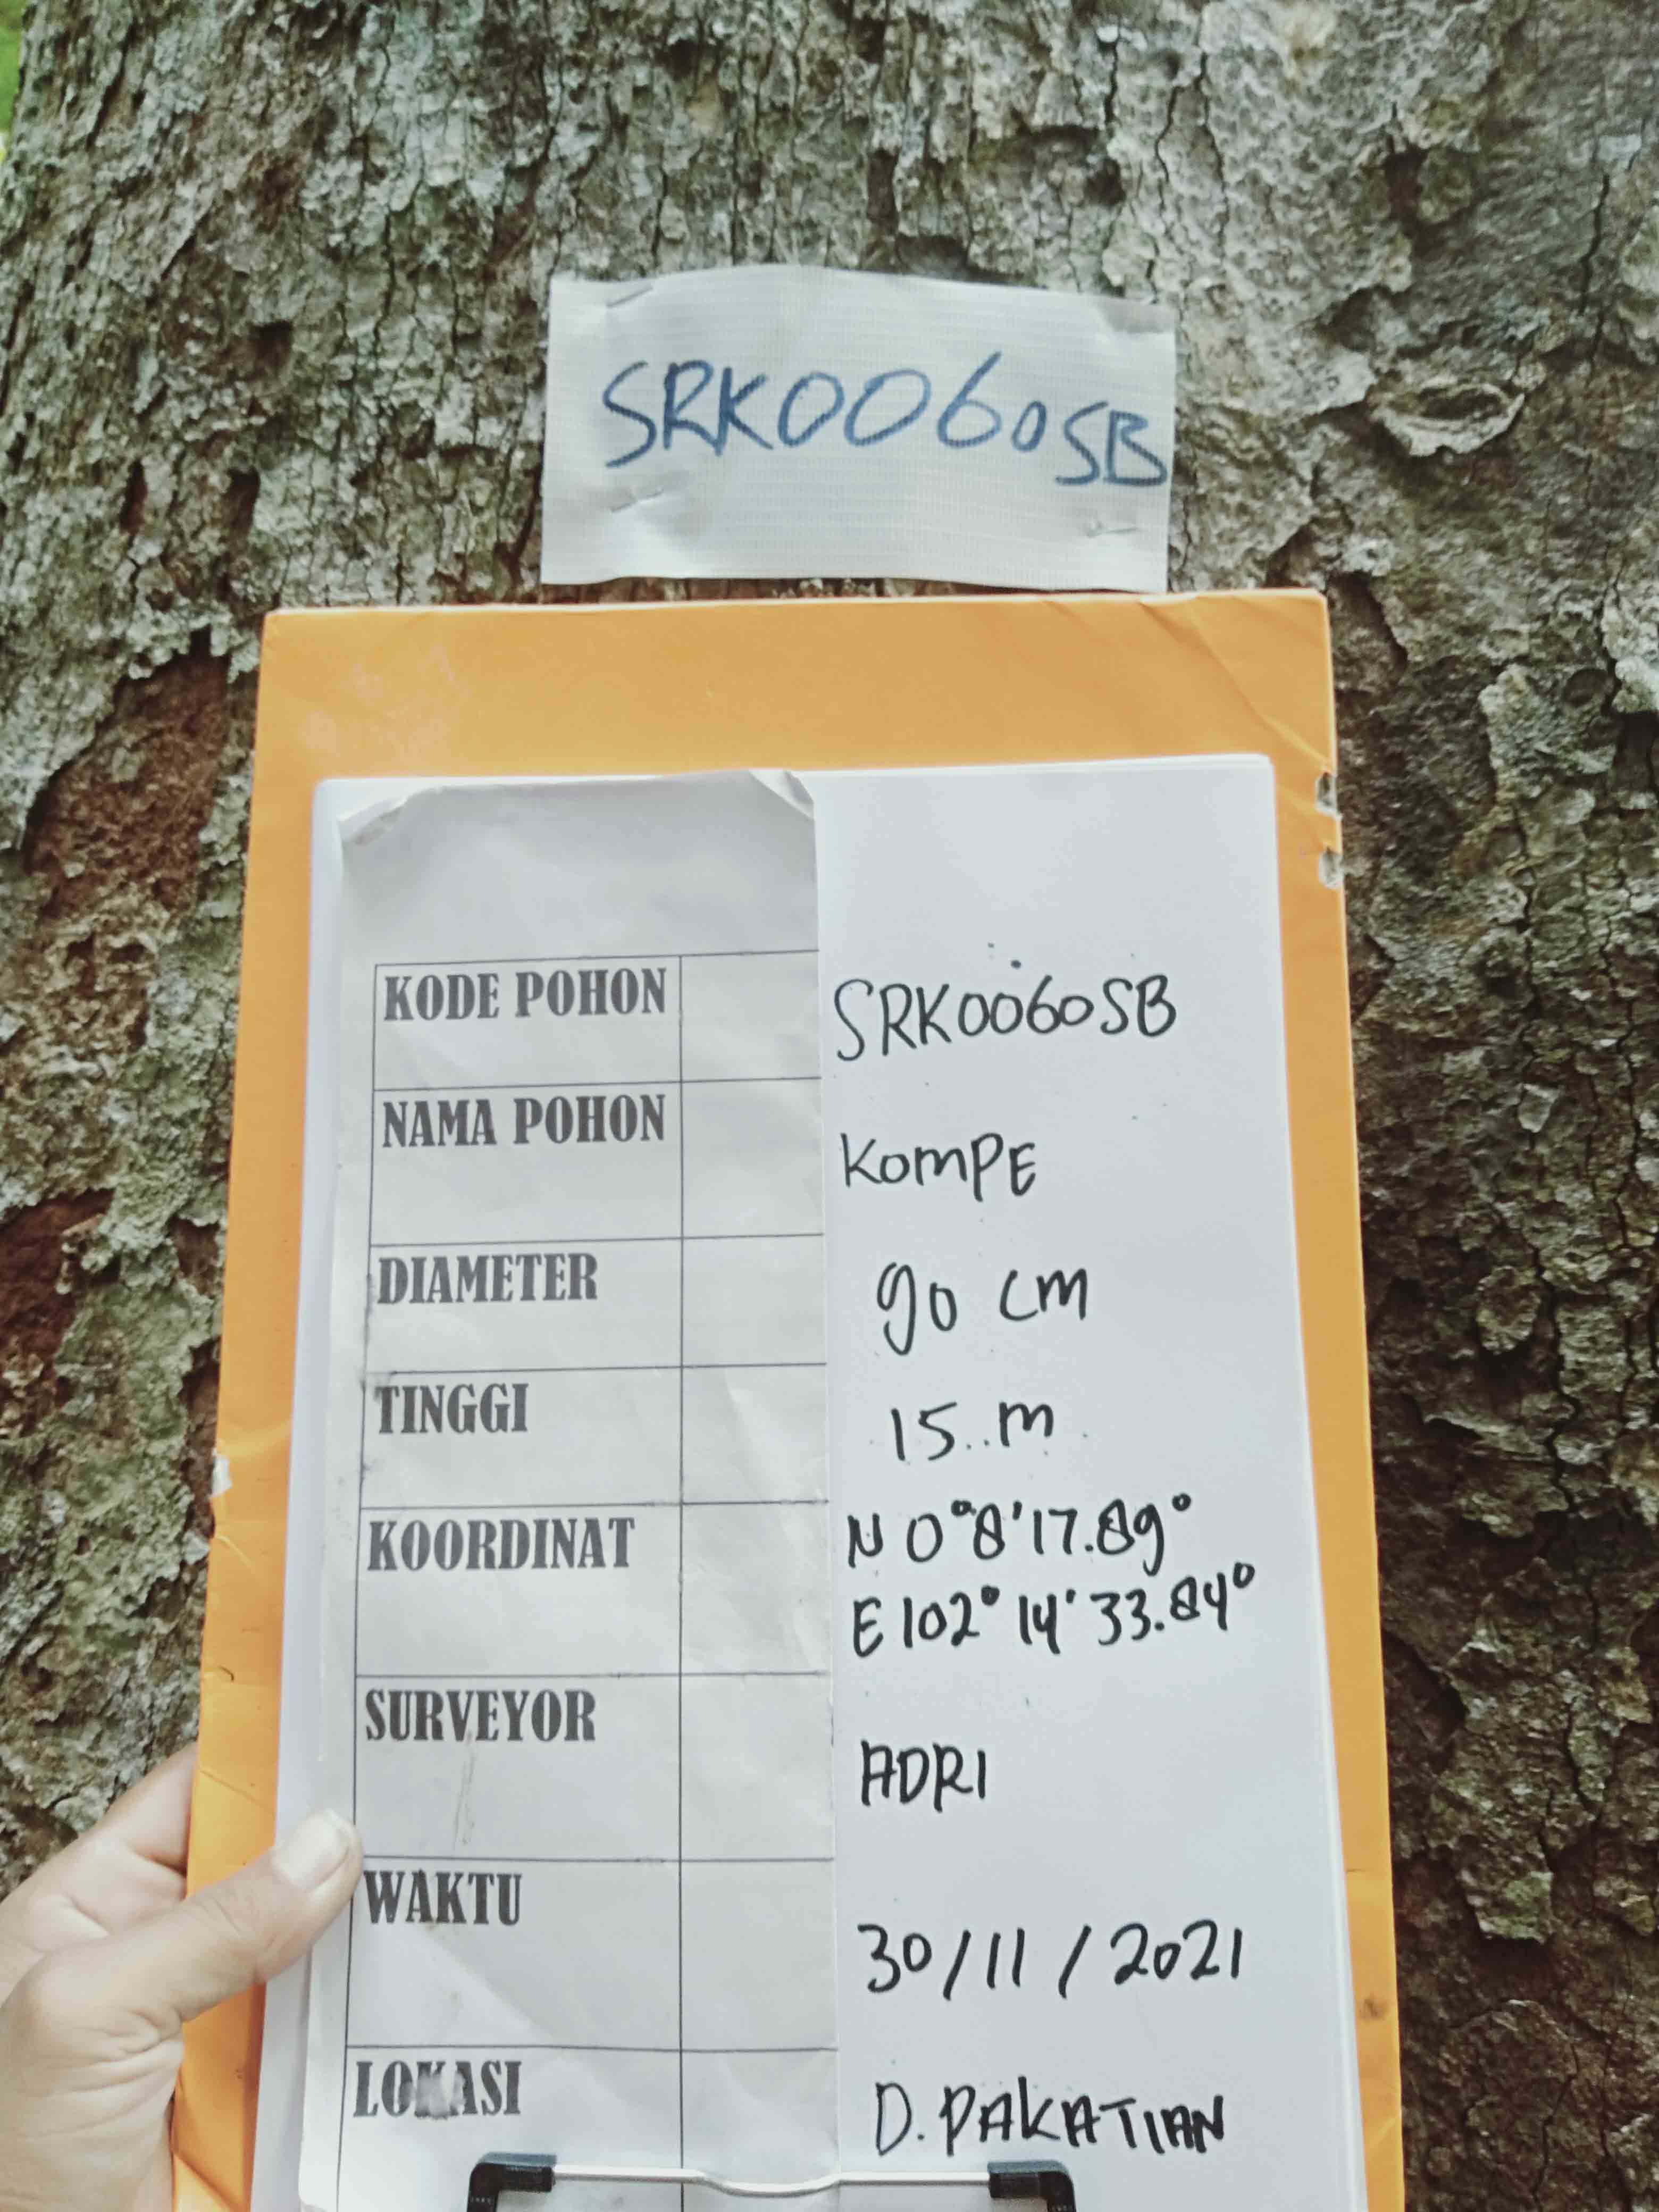 SRK0060SB
KODE POHON SRK0060SB
NAMA POHON KOMPE
DIAMETER 90 cm
TINGGI 15..m
KOORDINAT N 0°8'17.89°
E 102° 14' 33.84°
SURVEYOR ADRI
WAKTU 30/11/2021
LOKASI D. PAKATIAN